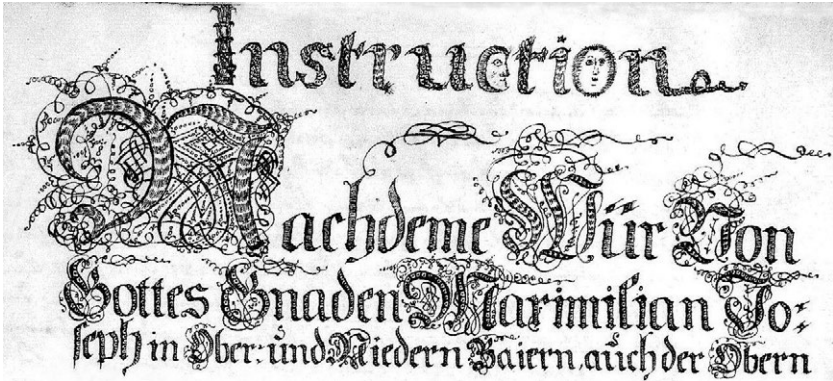 Instruction
Nachdeme Wür Von
Gottes Gnaden Maximilian Jo=
seph in Ober: und Niedern Baiern, auch der Obern